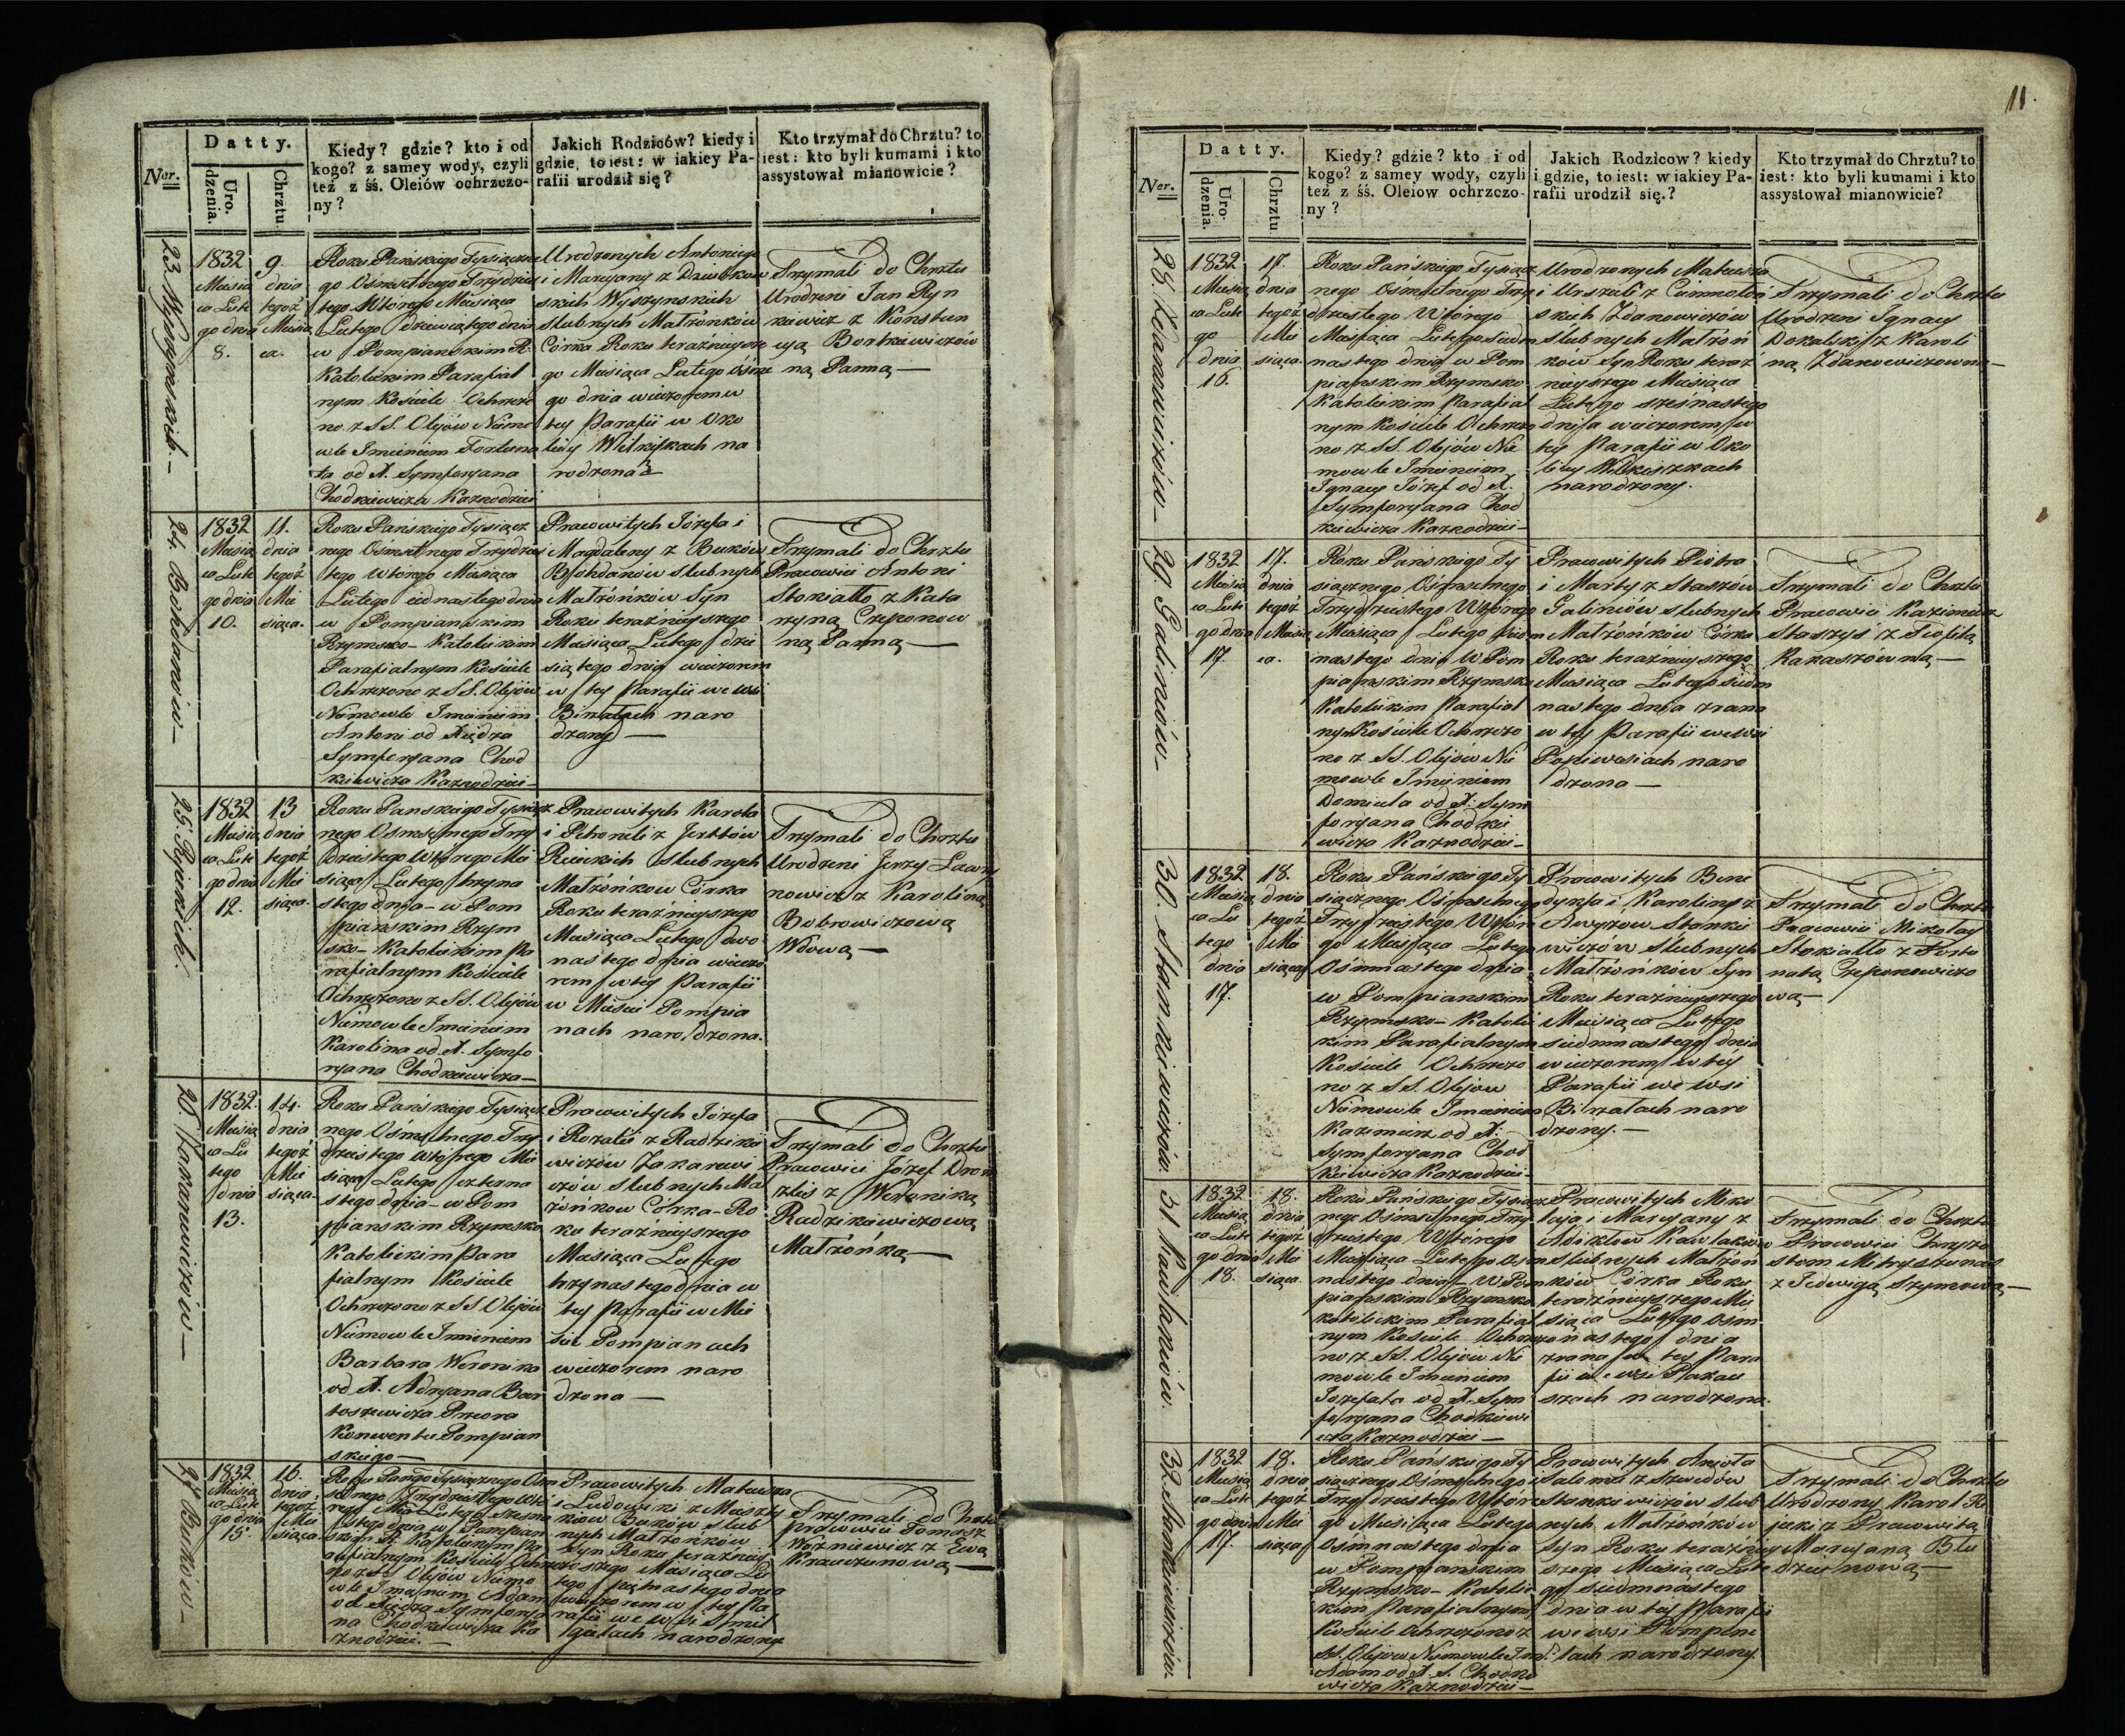 11.
Ner.
Datty.
Uro. dzenia.
Chrztu
Kiedy? gdzie? kto i od
kogo? z samey wody, czyli
też z śś. Oleiów ochrzczo-
ny?
Jakich Rodziców? kiedy i
gdzie, to iest: w iakiey Pa-
rafii urodził się?
Kto trzymał do Chrztu? to
iest: kto byli kumami i kto
assystował mianowicie?
23. Wyszynskich
1832
Miesią
ca Lute
go dnia
8.
9
dnia
tegoż
Miesią
ca.
Roku Pańskiego Tysiączne
go Ośmsetnego Trzydzies
tego Wtórego Miesiąca
Lutego dziewiątego dnia
w Pompianskim R.
Katolickim Parafial
nym Kościele Ochrzczo
no z SS. Olejów Niemo
wle Imieniem Fortuna
ta od X. Symforyana
Chodkiewicza Kaznodziei
Urodzonych Antoniego
i Maryany z
skich Wyszynskich
slubnych Małżonków
Córka Roku teraźnieysze
go Miesiąca Lutego ósme
go dnia wieczorem w
tey Parafii w Oko
licy Wilkiszkach na
rodzona
Trzymali do Chrztu
Urodzeni Jan Ryn
kiewicz z Konstan
cyą Bortkiewiczów
ną Panną —
24. Bohdanów —
1832
Miesią
ca Lute
go dnia
10.
11.
dnia
tegoż
Mie
siąca.
Roku Pańskiego Tysiącz
nego Ośmsetnego Trzydzies
tego Wtórego Miesiąca
Lutego iednastego dnia
w Pompianskim
Rzymsko-Katolickim
Parafialnym Kościele
Ochrzczono z SS. Olejów
Niemowle Imieniem
Antoni od Xiędza
Symforyana Chod
kiewicza Kaznodziei —
Pracowitych Józefa i
Magdaleny z Buków
Bohdanów slubnych
Małżonków Syn
Roku teraźnieyszego
Miesiąca Lutego dzie
siątego dnia wieczorem
w tey Parafii we wsi
naro
dzony —
Trzymali do Chrztu
Pracowici Antoni
Stokiałło z Kata
rzyną Czeponow
ną Panną —
25.
1832
Miesią
ca Lute
go dnia
12.
13
dnia
tegoż
Mie
siąca.
Roku Panskiego Tysiącz
nego Osmsetnego Trzy
dziestego Wtórego Mie
siąca Lutego trzyna
stego dnia — w Pom
pianskim Rzym
sko-Katolickim Pa
rafialnym Kościele
Ochrzczono z SS. Olejów
Niemowle Imieniem
Karolina od X. Symfo
ryana Chodkiewicza —
Pracowitych Karola
i Petroneli z
slubnych
Małżonkow Córka
Roku teraźnieyszego
Miesiąca Lutego dwo
nastego dnia wieczo
rem w tey Parafii
w Mieście Pompia
nach narodzona.
Trzymali do Chrztu
Urodzeni Jerzy Ławry
nowicz z Karoliną
Bobrowiczową
Wdową —
26. Zakarewiczów —
1832.
Miesią
ca Lu
tego
dnia
13.
14.
dnia
tegoż
Mie
siąca.
Roku Pańskiego Tysiącz
nego Ośmsetnego Trzy
dziestego Wtórego Mie
siąca Lutego czterna
stego dnia — w Pom
pianskim Rzymsko
Katolickim Para
fialnym Kościele
Ochrzczono z SS Olejów
Niemowle Imieniem
Barbara Weronika
od X. Adryana Bar
toszewicza Przeora
Konwentu Pompian
skiego —
Pracowitych Józefa
i Rozalii z Radzikie
wiczów Zakarewi
czów slubnych Mał
żonkow Córka — Ro
ku teraźnieyszego
Miesiąca Lutego
trzynastego dnia w
tey Parafii w Mie
ście Pompianach
wieczorem naro
dzona —
Trzymali do Chrztu
Pracowici Józef
z Weroniką
Radzikiewiczową
Małżonką —
27. Buików —
1832.
Miesią
ca Lute
go dnia
15.
16.
dnia
tegoż
Mie
siąca.
Roku Pańgo Tysiącznego Osm
setnego Trzydziestego Wtó
rego Lutego szesna
stego dnia w Pompian
skim R. Katolickim Pa
rafialnym Kościele Ochrzczo
no z SS Olejów Niemo
wle Imieniem Adam
od Xiędza Symforya
na Chodkiewicza Ka
znodziei. —
Pracowitych Mateusza
i Ludowiki z
slub
nych Małżonków
Syn Roku teraźniey
szego Miesiąca Lu
tego piętnastego dnia
wieczorem w tey Pa
rafii we wsi Smil
giach narodzony
Trzymali do Chrztu
Pracowici Tomasz
Woźniewicz z Ewą
Krawczunową —
Ner.
Datty.
Uro- dzenia.
Chrztu.
Kiedy? gdzie? kto i od
kogo? z samey wody, czyli
też z śś. Oleiow ochrzczo-
ny?
Jakich Rodzicow? kiedy
i gdzie, to iest: w iakiey Pa-
rafii urodził się.?
Kto trzymał do Chrztu? to
iest: kto byli kumami i kto
assystował mianowicie?
28. Zdanowiczów —
1832
Miesią
ca Lute
go
dnia
16.
17.
dnia
tegoż
Mie
siąca.
Roku Pańskiego Tysiącz
nego Ośmsetnego Trzy
dziestego Wtorego
Miesiąca Lutego siedm
nastego dnia w Pom
pianskim Rzymsko
Katolickim Parafial
nym Kościele Ochrzczo
no z SS. Olejów Nie
mowle Imieniem
Ignacy Józef od X.
Symforyana Chod
kiewicza Kaznodziei —
Urodzonych Mateusza
i Urszuli z
skich Zdanowiczów
Slubnych Małżon
ków Syn Roku teraź
nieyszego Miesiąca
Lutego szesnastego
dnia wieczorem w
tey Parafii w Oko
licy Wilkiszkach
narodzony.
Trzymali do Chrztu
Urodzeni Ignacy
Dokalski z Karoli
ną Zdanowiczowną —
29. Galinów —
1832
Miesią
ca Lute
go dnia
17.
17.
dnia
tegoż
Miesią
ca.
Roku Pańskiego Ty
siącznego Ośmsetnego
Trzydziestego Wtórego
Miesiąca Lutego siedm
nastego dnia w Pom
pianskim Rzymsko
Katolickim Parafial
nym Kościele Ochrzczo
no z SS. Olejów Nie
mowle Imieniem
Domicela od X. Sym
foryana Chodkie
wicza Kaznodziei —
Pracowitych Piotra
i Marty z Staszów
Galinów slubnych
Małżonków Córka
Roku teraźnieyszego
Miesiąca Lutego siedm
nastego dnia zrana
w tey Parafii we wsi
Popiewesiach naro
dzona —
Trzymali do Chrztu
Pracowici Kazimierz
Staszys z Teofilą
Karaszówną —
30. Stankiewiczów.
1832
Miesią
ca Lu
tego
dnia
17.
18.
dnia
tegoż
Mie
siąca
Roku Pańskiego Ty
siącznego Ośmsetnego
Trzydziestego Wtóre
go Miesiąca Lutego
Ośmnastego dnia
w Pompianskim
Rzymsko-Katolic
kim Parafialnym
Kościele Ochrzczo
no z SS. Olejow
Niemowle Imieniem
Kazimierz od X.
Symforyana Chod
kiewicza Kaznodziei —
Pracowitych Bene
dykta i Karoliny z
Stankie
wiczów slubnych
Małżonkow Syn
Roku teraźnieyszego
Miesiąca Lutego
siedmnastego dnia
wieczorem w tey
Parafii we wsi
Birżatach naro
dzony. —
Trzymali do Chrztu
Pracowici Mikołay
Stokiałło z Fortu
natą Czeponowiczo
wą —
31. Kawlanów.
1832
Miesią
ca Lute
go dnia
18.
18.
dnia
tegoż
Mie
siąca.
Roku Pańskiego Tysiącz
nego Ośmsetnego Trzy
dziestego Wtórego
Miesiąca Lutego osm
nastego dnia — w Pom
pianskim Rzymsko
Katolickim Parafial
nym Kosciele Ochrzczo
no z SS. Olejów Nie
mowle Imieniem
Jozefata od X. Sym
foryana Chodkiewi
cza Kaznodziei —
Pracowitych Miko
łaja i Maryany z
slubnych Małżon
ków Córka Roku
teraźnieyszego Mie
siąca Lutego osm
nastego dnia
zrana w tey Para
fii we wsi
narodzona.
Trzymali do Chrztu
Pracowici Chryzo
stom
z Jedwigą Szymową —
32. Stankiewiczów.
1832
Miesią
ca Lute
go dnia
17.
18.
dnia
tegoż
Mie
siąca
Roku Pańskiego Ty
siącznego Ośmsetnego
Trzydziestego Wtóre
go Miesiąca Lutego
Osmnastego dnia
w Pompianskim
Rzymsko-Katolic
kim Parafialnym
Kościele Ochrzczono z
SS. Olejow Niemowle Im.
Adam od X. S. Chodkie
wicza Kaznodziei —
Pracowitych Anioła
i Salomei z Szwedów
Stankiewiczów slub
nych Małżonków
Syn Roku teraźniey
szego Miesiąca Lute
go siedmnastego
dnia w tey Parafii
we wsi
narodzony.
Trzymali do Chrztu
Urodzony Karol
z Pracowitą
Maryanną